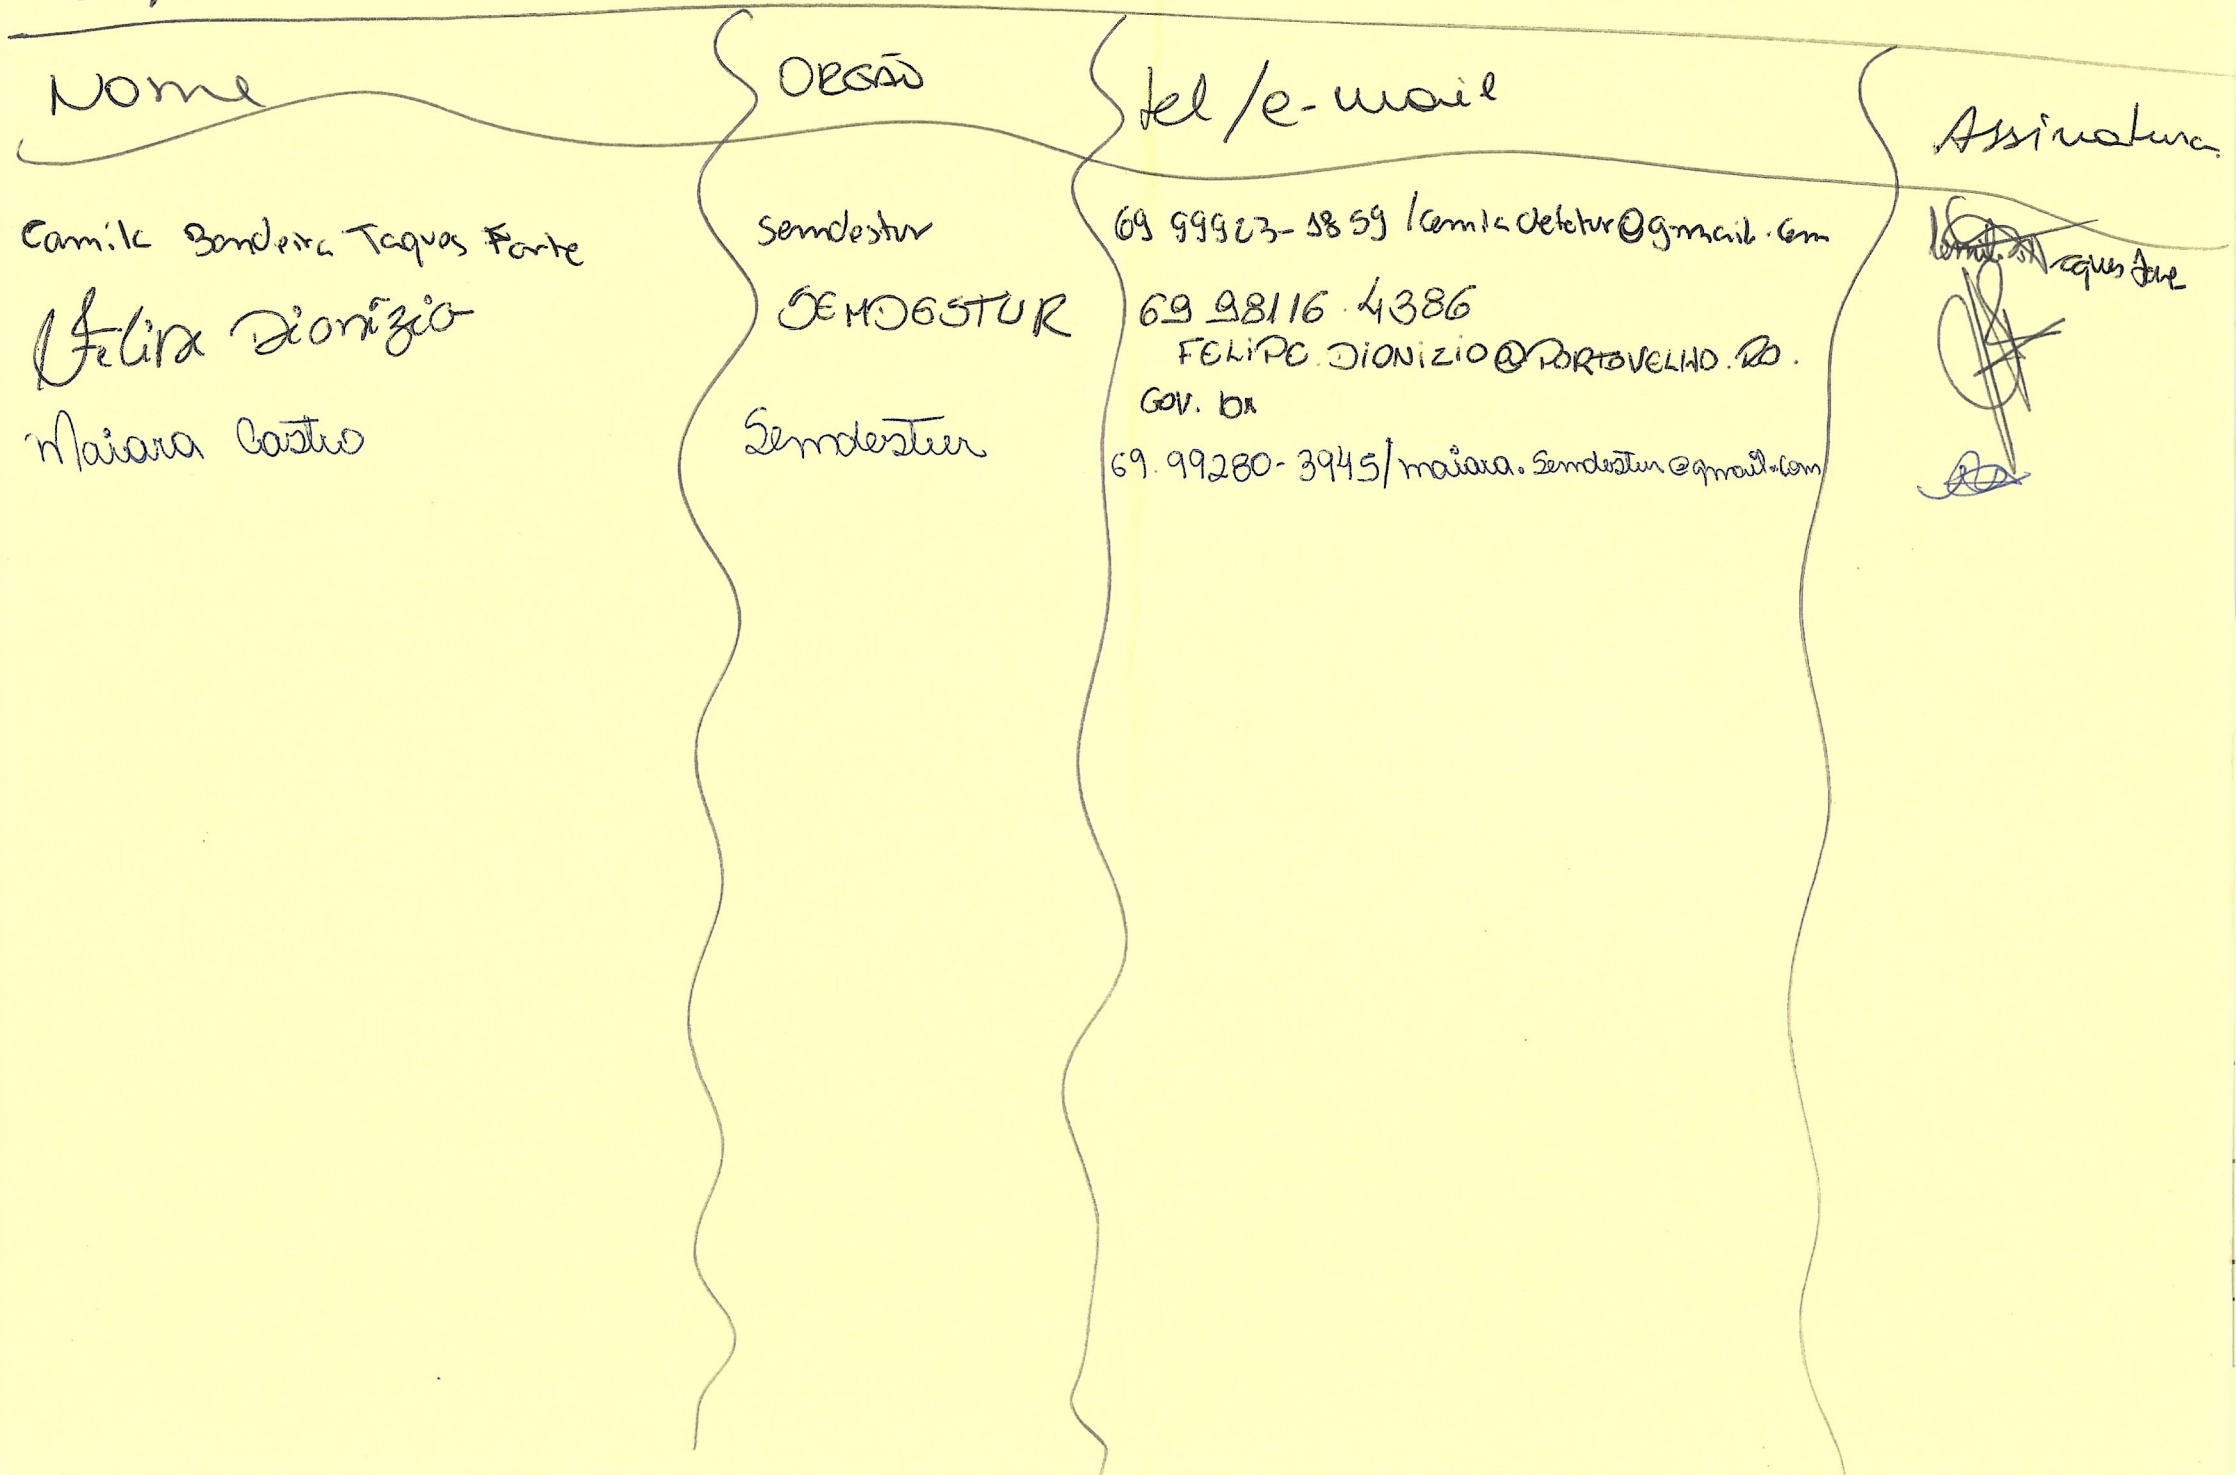 Nome ORGÃO tel/e-mail Assinatura
Camila Bandeira Taques Forte semdestur 69 99923-1859 / camiladetetur@gmail.com
Felipe Dionízio SEMDESTUR 69 98116.4386
FELIPE.DIONIZIO@PORTOVELHO.RO.
GOV.br
Maiara Castro Semdestur 69.99280-3945/maiara.semdestur@gmail.com